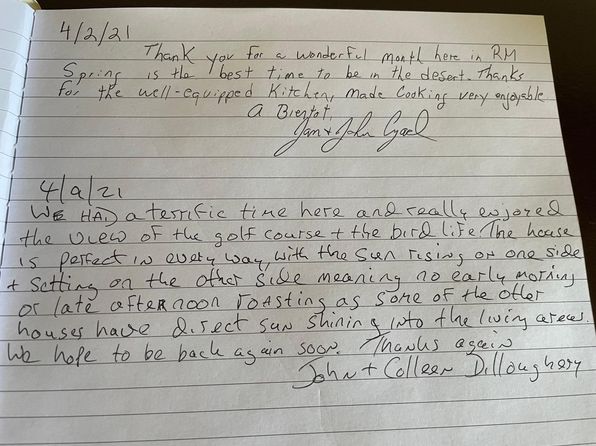 4/2/21
Thank you for a wonderful month here in RM
Spring is the best time to be in the desert. Thanks
for the well-equipped kitchen, made cooking very enjoyable.
A Bientot,
Jan + John
4/9/21
WE HAD a terrific time here and really enjoyed
the view of the golf course + the bird life. The house
is perfect in every way, with the sun rising on one side
+ setting on the other side meaning no early morning
or late afternoon roasting as some of the other
houses have direct sun shining into the living areas.
We hope to be back again soon. Thanks again
John + Colleen Dilloughery